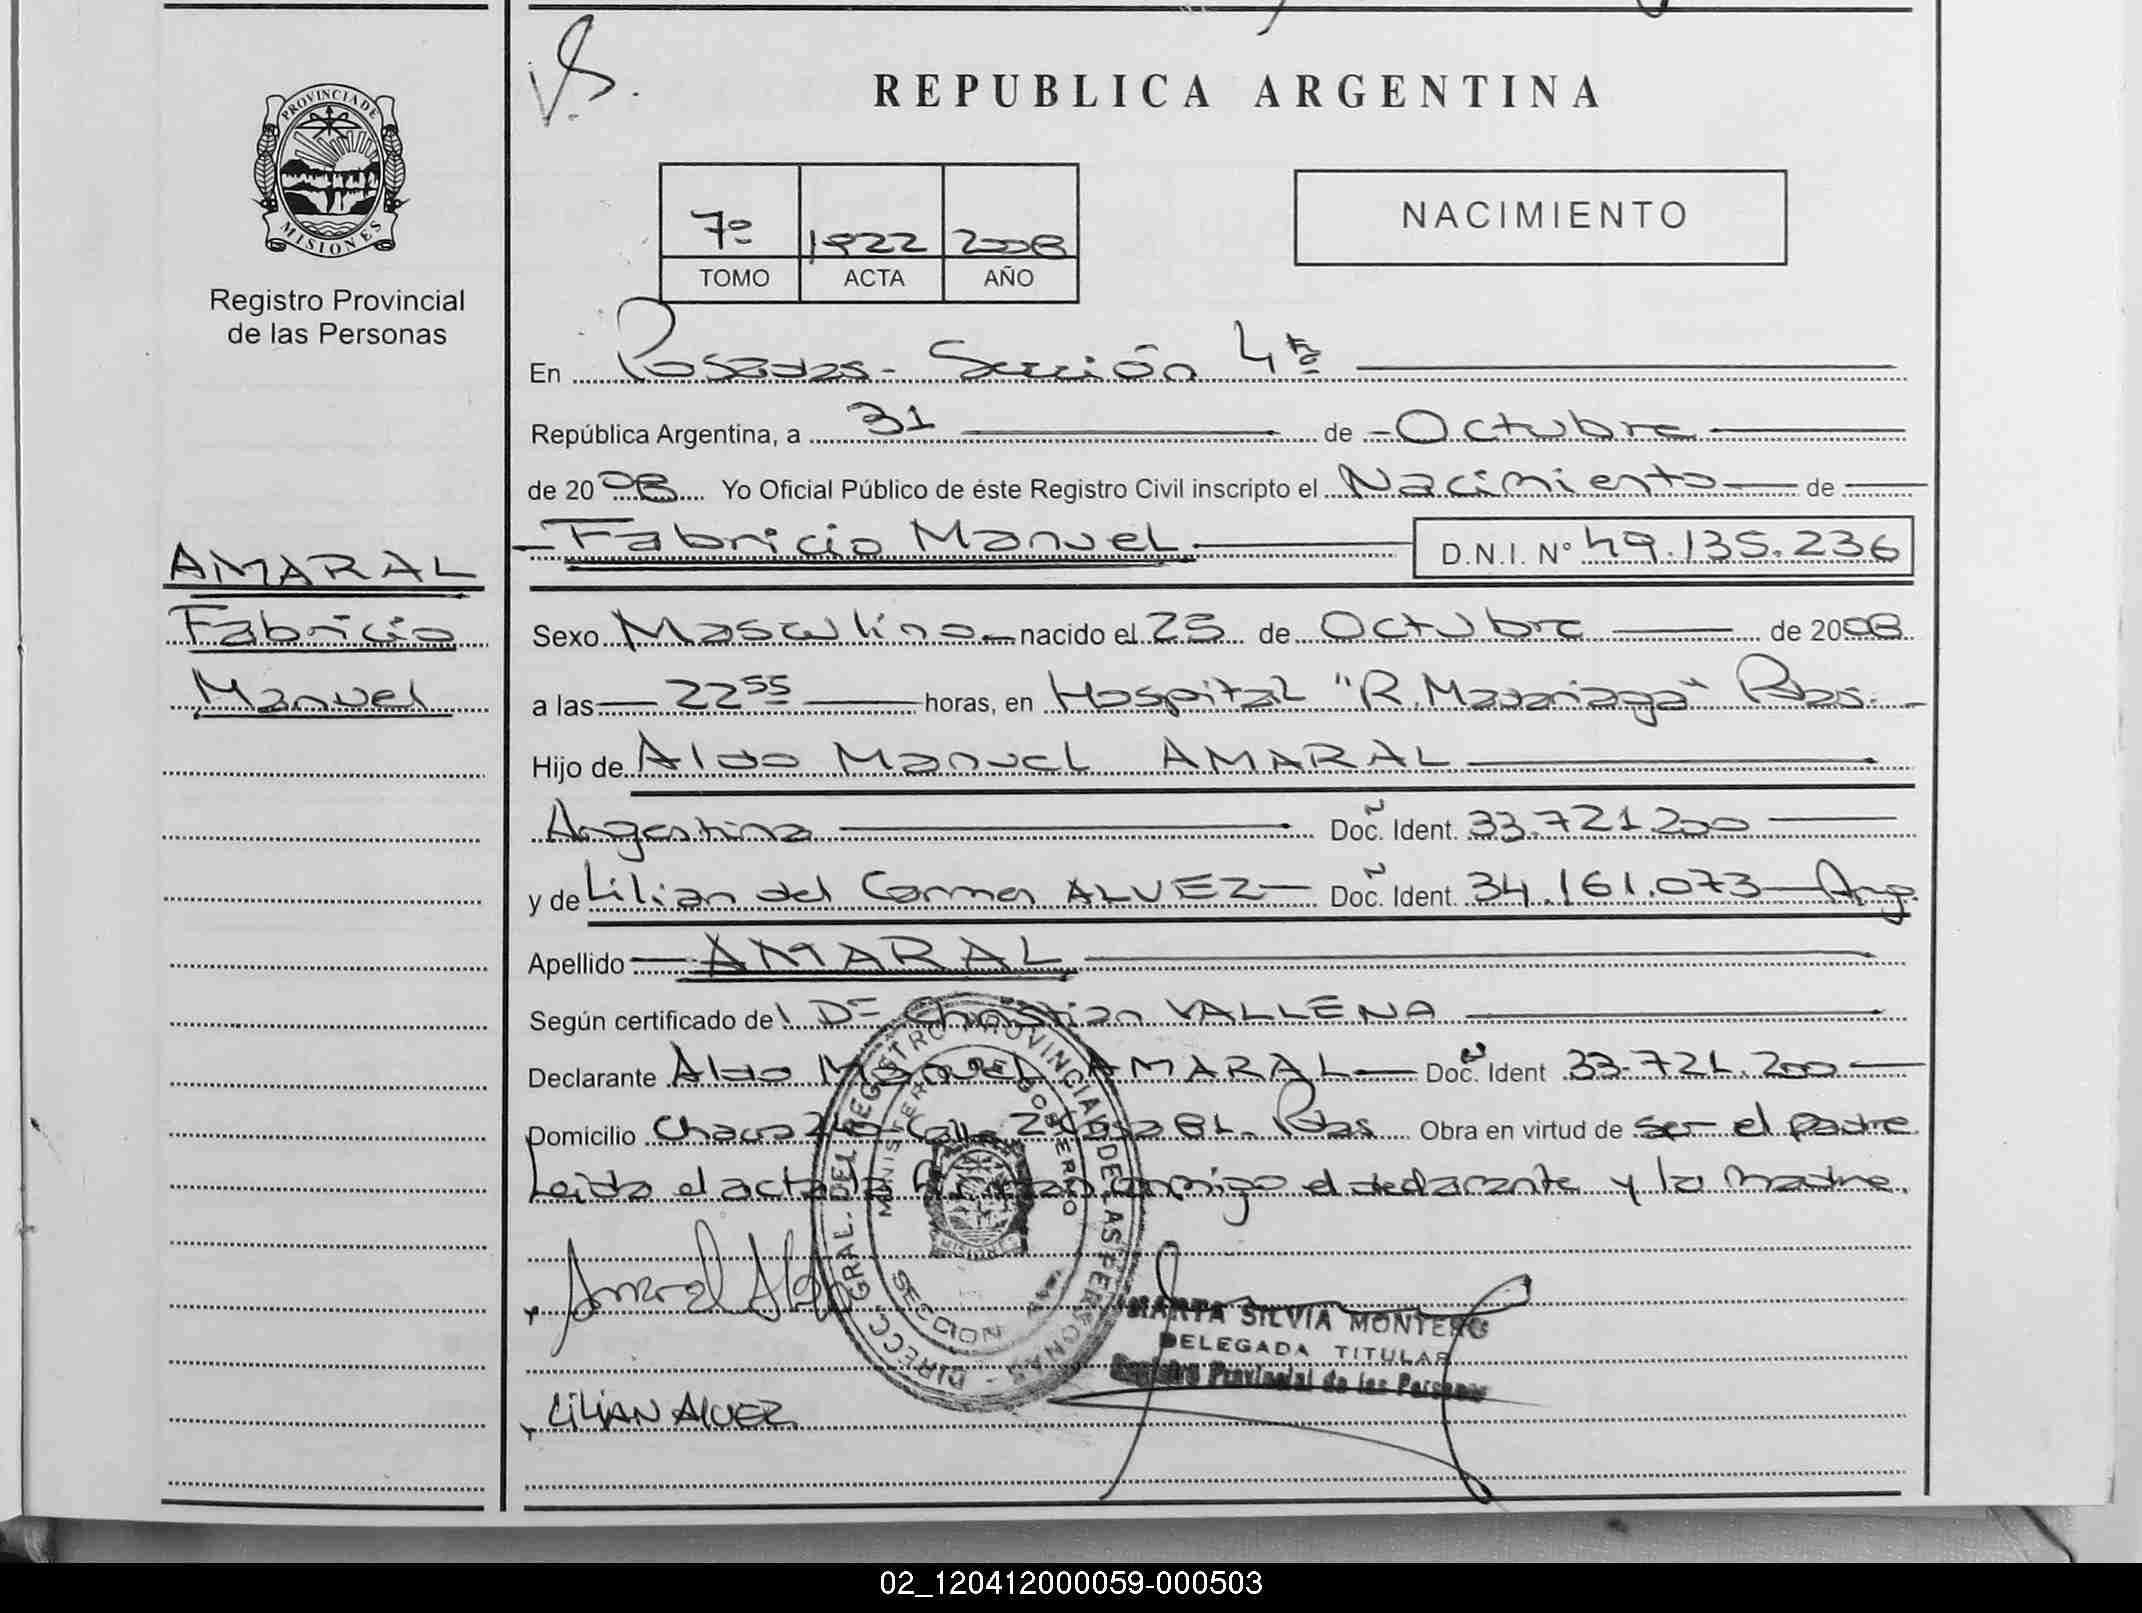 PROVINCIA DE
MISIONES
Registro Provincial
de las Personas
AMARAL
Fabricio
Manuel
REPUBLICA ARGENTINA
7º 1922 2008
TOMO ACTA AÑO
NACIMIENTO
En Posadas - Sección 4ta
República Argentina, a 31 de Octubre
de 2008 Yo Oficial Público de éste Registro Civil inscripto el Nacimiento de
Fabricio Manuel D.N.I. Nº 49.135.236
Sexo Masculino nacido el 23 de Octubre de 2008
a las 22 55 horas, en Hospital "R. Madariaga" Pdas.
Hijo de Aldo Manuel AMARAL
Argentina Doc. Ident. 33.721.200
y de Lilian del Carmen ALVEZ Doc. Ident. 34.161.073 Arg.
Apellido AMARAL
Según certificado del Dr Christian VALLENA
Declarante Aldo Manuel AMARAL Doc. Ident 33.721.200
Domicilio Chacra 246 Calle Pdas Obra en virtud de ser el padre
Leida el acta la firman conmigo el declarante y la madre.
Amaral Aldo
DIRECC. GRAL. DEL REGISTRO PROVINCIAL DE LAS PERSONAS
MINISTERIO GOBIERNO
SECCION
MISIONES
MARTA SILVIA MONTERO
DELEGADA TITULAR
Registro Provincial de las Personas
LILIAN ALVEZ
02_120412000059-000503